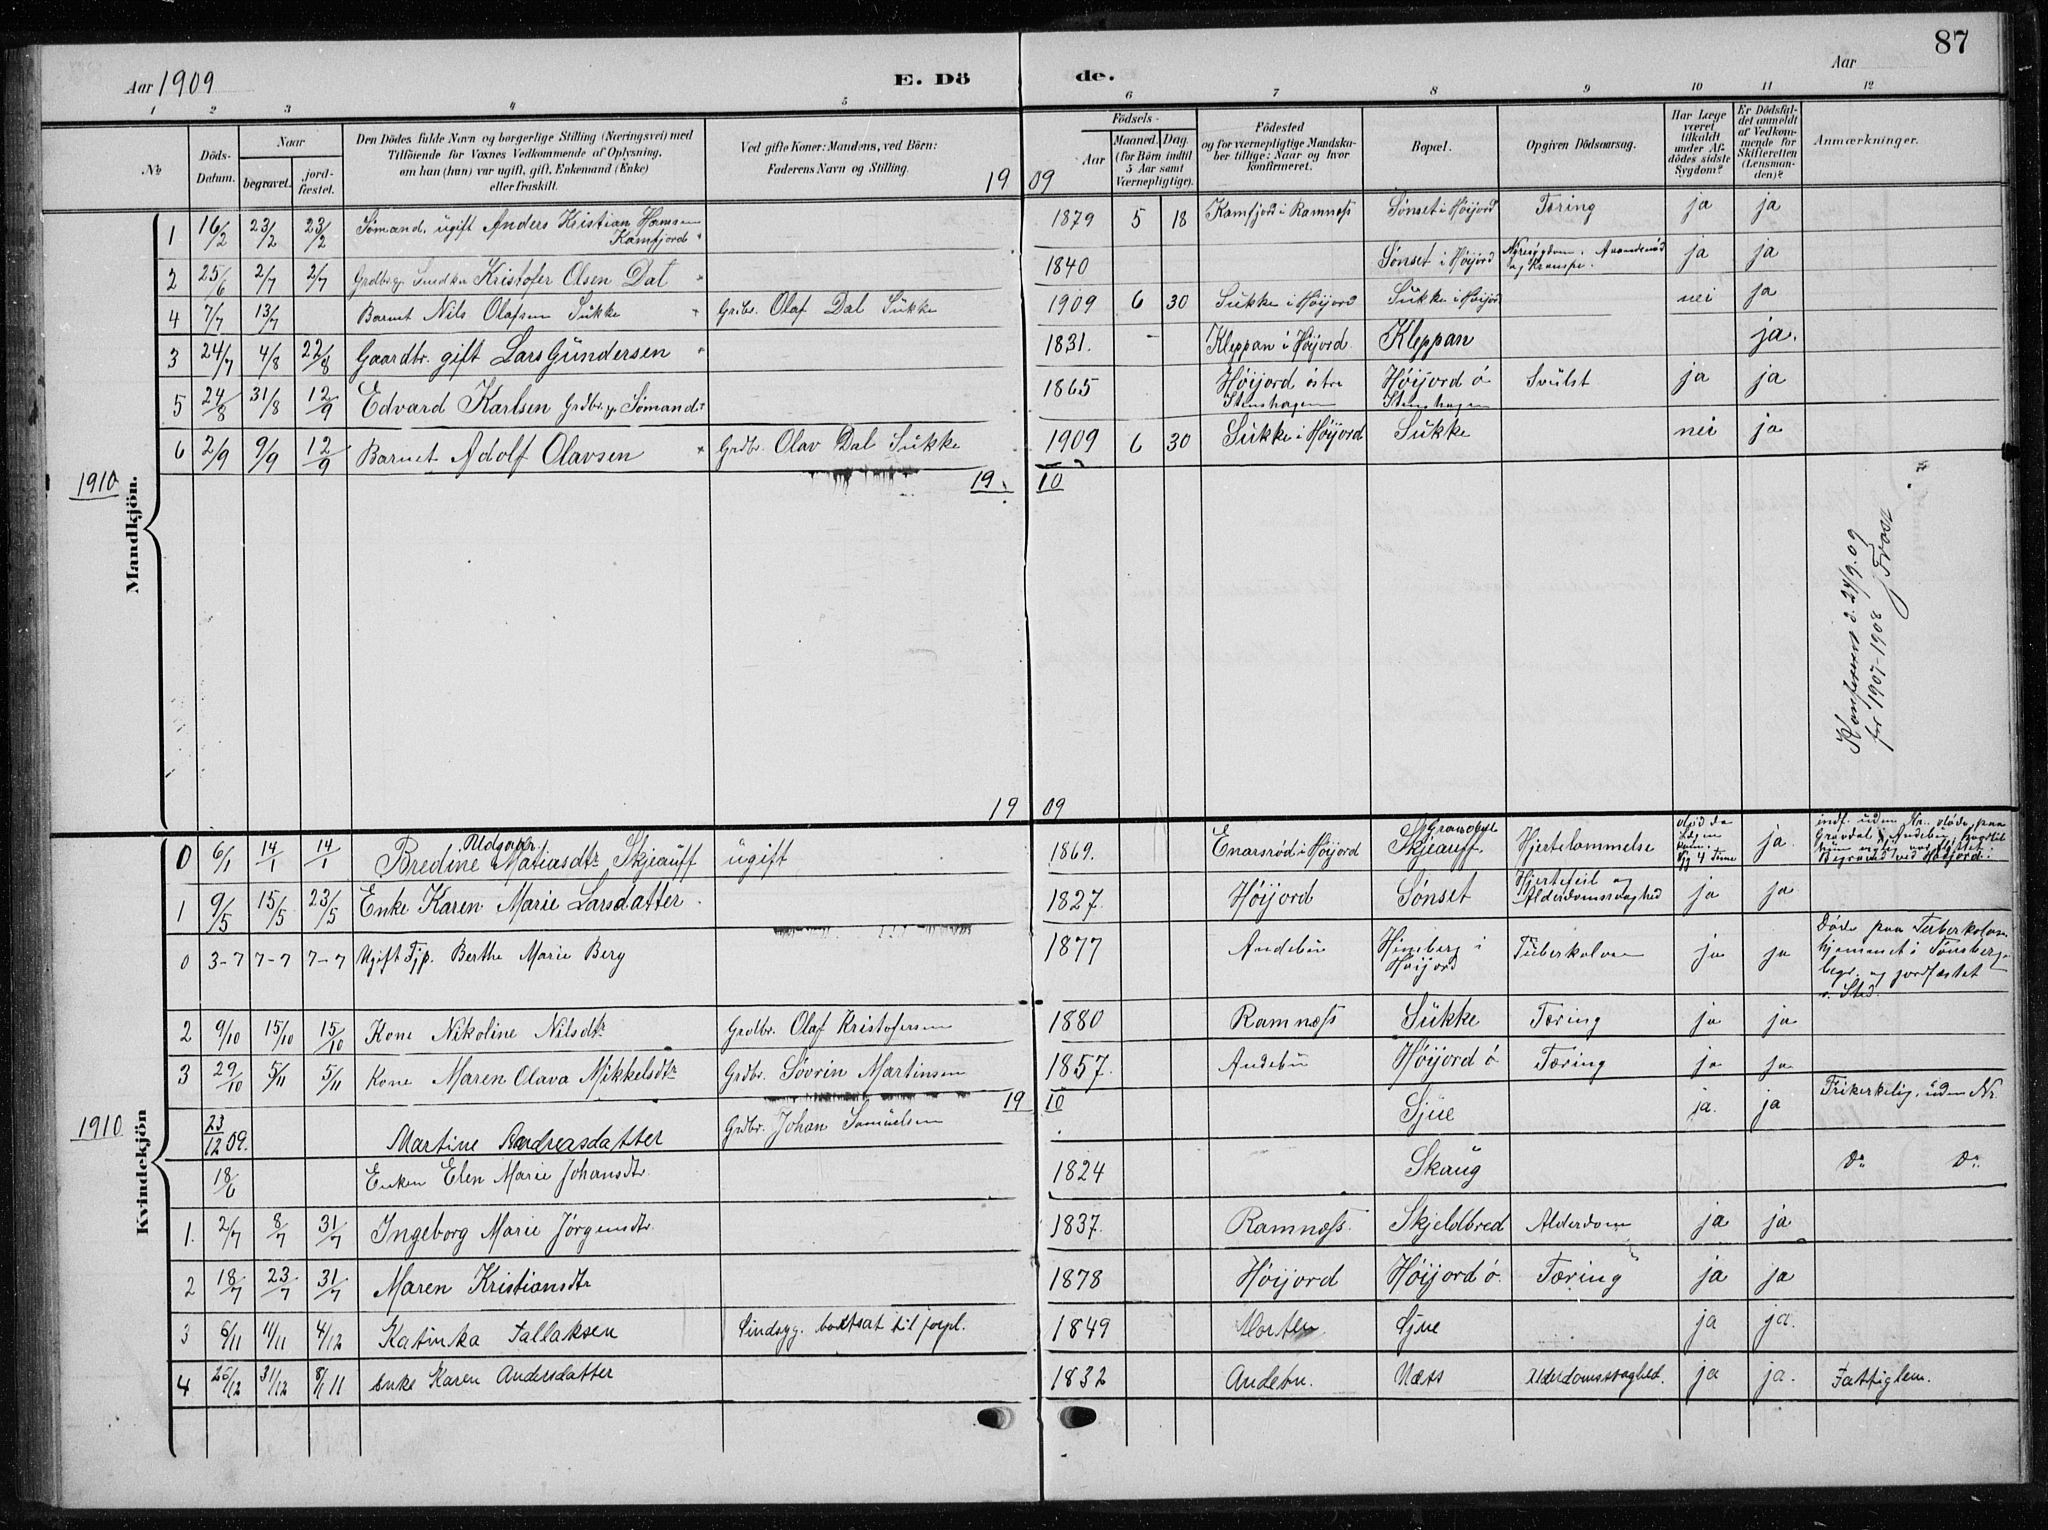 87
Aar 1909 E. Dö de. Aar
1 2 3 4 5 6 7 8 9 10 11 12
No
Döds-Datum.
Naar
begravet.
jordfæstet.
Den Dödes fulde Navn og borgerlige Stilling (Næringsvei) med
Tilföiende for Voxnes Vedkommende af Oplysning,
om han (hun) var ugift, gift, Enkemand (Enke)
eller fraskilt.
Ved gifte Koner: Mandens, ved Börn:
Faderens Navn og Stilling.
Födsels-
Aar
Maaned. Dag.
(for Börn indtil
5 Aar samt
Værnepligtige).
Födested
og for værnepligtige Mandskaber tillige: Naar og hvor
konfirmeret.
Bopæl.
Opgiven Dödsaarsag.
Har Læge
været
tilkaldt
under Afdödes sidste
Sygdom?
Er Dödsfaldet anmeldt
af Vedkommende for
Skifteretten
(Lensmanden)?
Anmærkninger.
19 09
Mandkjön.
1 16/2 23/2 23/2 Sømand, ugift Anders Kristian Hansen Kamfjord 1879 5 18 Kamfjord i Ramnæss Sønset i Höijord Tæring ja ja
2 25/6 2/7 2/7 Grdbr. og Snedker Kristofer Olsen Dal 1840 Sønset i Höijord Nyresygdom, Aandenød og Krampe. ja ja
4 7/7 13/7 Barnet Nils Olafsen Sukke Grdbr. Olaf Dal Sukke 1909 6 30 Sukke i Höijord Sukke i Höijord nei ja
3 24/7 4/8 22/8 Gaardbr. gift Lars Gundersen 1831. - Kleppan i Höijord. Kleppan ja.
5 24/8 31/8 12/9 Edvard Karlsen Grdbr. og Sømand 1865 Höijord östre Stenshagen Höijord ö Stenshagen Svulst ja ja
6 2/9 9/9 12/9 Barnet Adolf Olavsen Grdbr. Olav Dal Sukke 1909 6 30 Sukke i Höijord Sukke nei ja
1910 19 10
Konfereret d. 24/9.09
for 1907-1908
19 09
Kvindekjön
0 6/1 14/1 14/1 Bredine Matiasdtr Skjeauff ugift 1869. Enarsrød i Höijord Skjeauff Hjertelammelse ja.
1 9/5 15/5 23/5 Enke Karen Marie Larsdatter. 1827. Höijord Sønset Hjertefeil og Alderdomssvaghed ja ja
0 3-7 7-7 7-7 Ugift Tjp. Berthe Marie Berg 1877 Andebu Himberg i Höijord Tuberkulose ja ja Døde paa Tuberkulosehjemmet i Tønsberg, begr. og jordfæstet s. Sted.
2 9/10 15/10 15/10 Kone Nikoline Nilsdtr Grdbr. Olaf Kristofersen 1880 Ramnæss Sukke Tæring ja ja
3 29/10 5/11 5/11 Kone Maren Olava Mikkelsdtr Grdbr. Søvrin Martinsen 1857. Andebu Höijord ö Tæring ja ja
1910 19 10
23/12 09. Martine Andreasdatter Grdbr. Johan Samuelsen Sjue ja. ja Frikirkelig, uden Nr.
18/6 Enken Elen Marie Johansdtr 1824 Skaug Do Do
1. 2/7 8/7 31/7 Ingeborg Marie Jørgensdtr. 1837. Ramnæss. Skjeldbred Alderdom ja ja
2 18/7 23/7 31/7 Maren Kristiansdtr 1878 Höijord Höijord ö. Tæring ja ja
3 6/11 11/11 4/12 Katinka Tallaksen Sindsyg. bortsat til forpl. 1849 Horten Sjue ja ja.
4 26/12 31/12 8/1 11 Enke Karen Andersdatter 1832 Andebu. Næss Alderdomssvaghed. ja ja. Fattiglem.